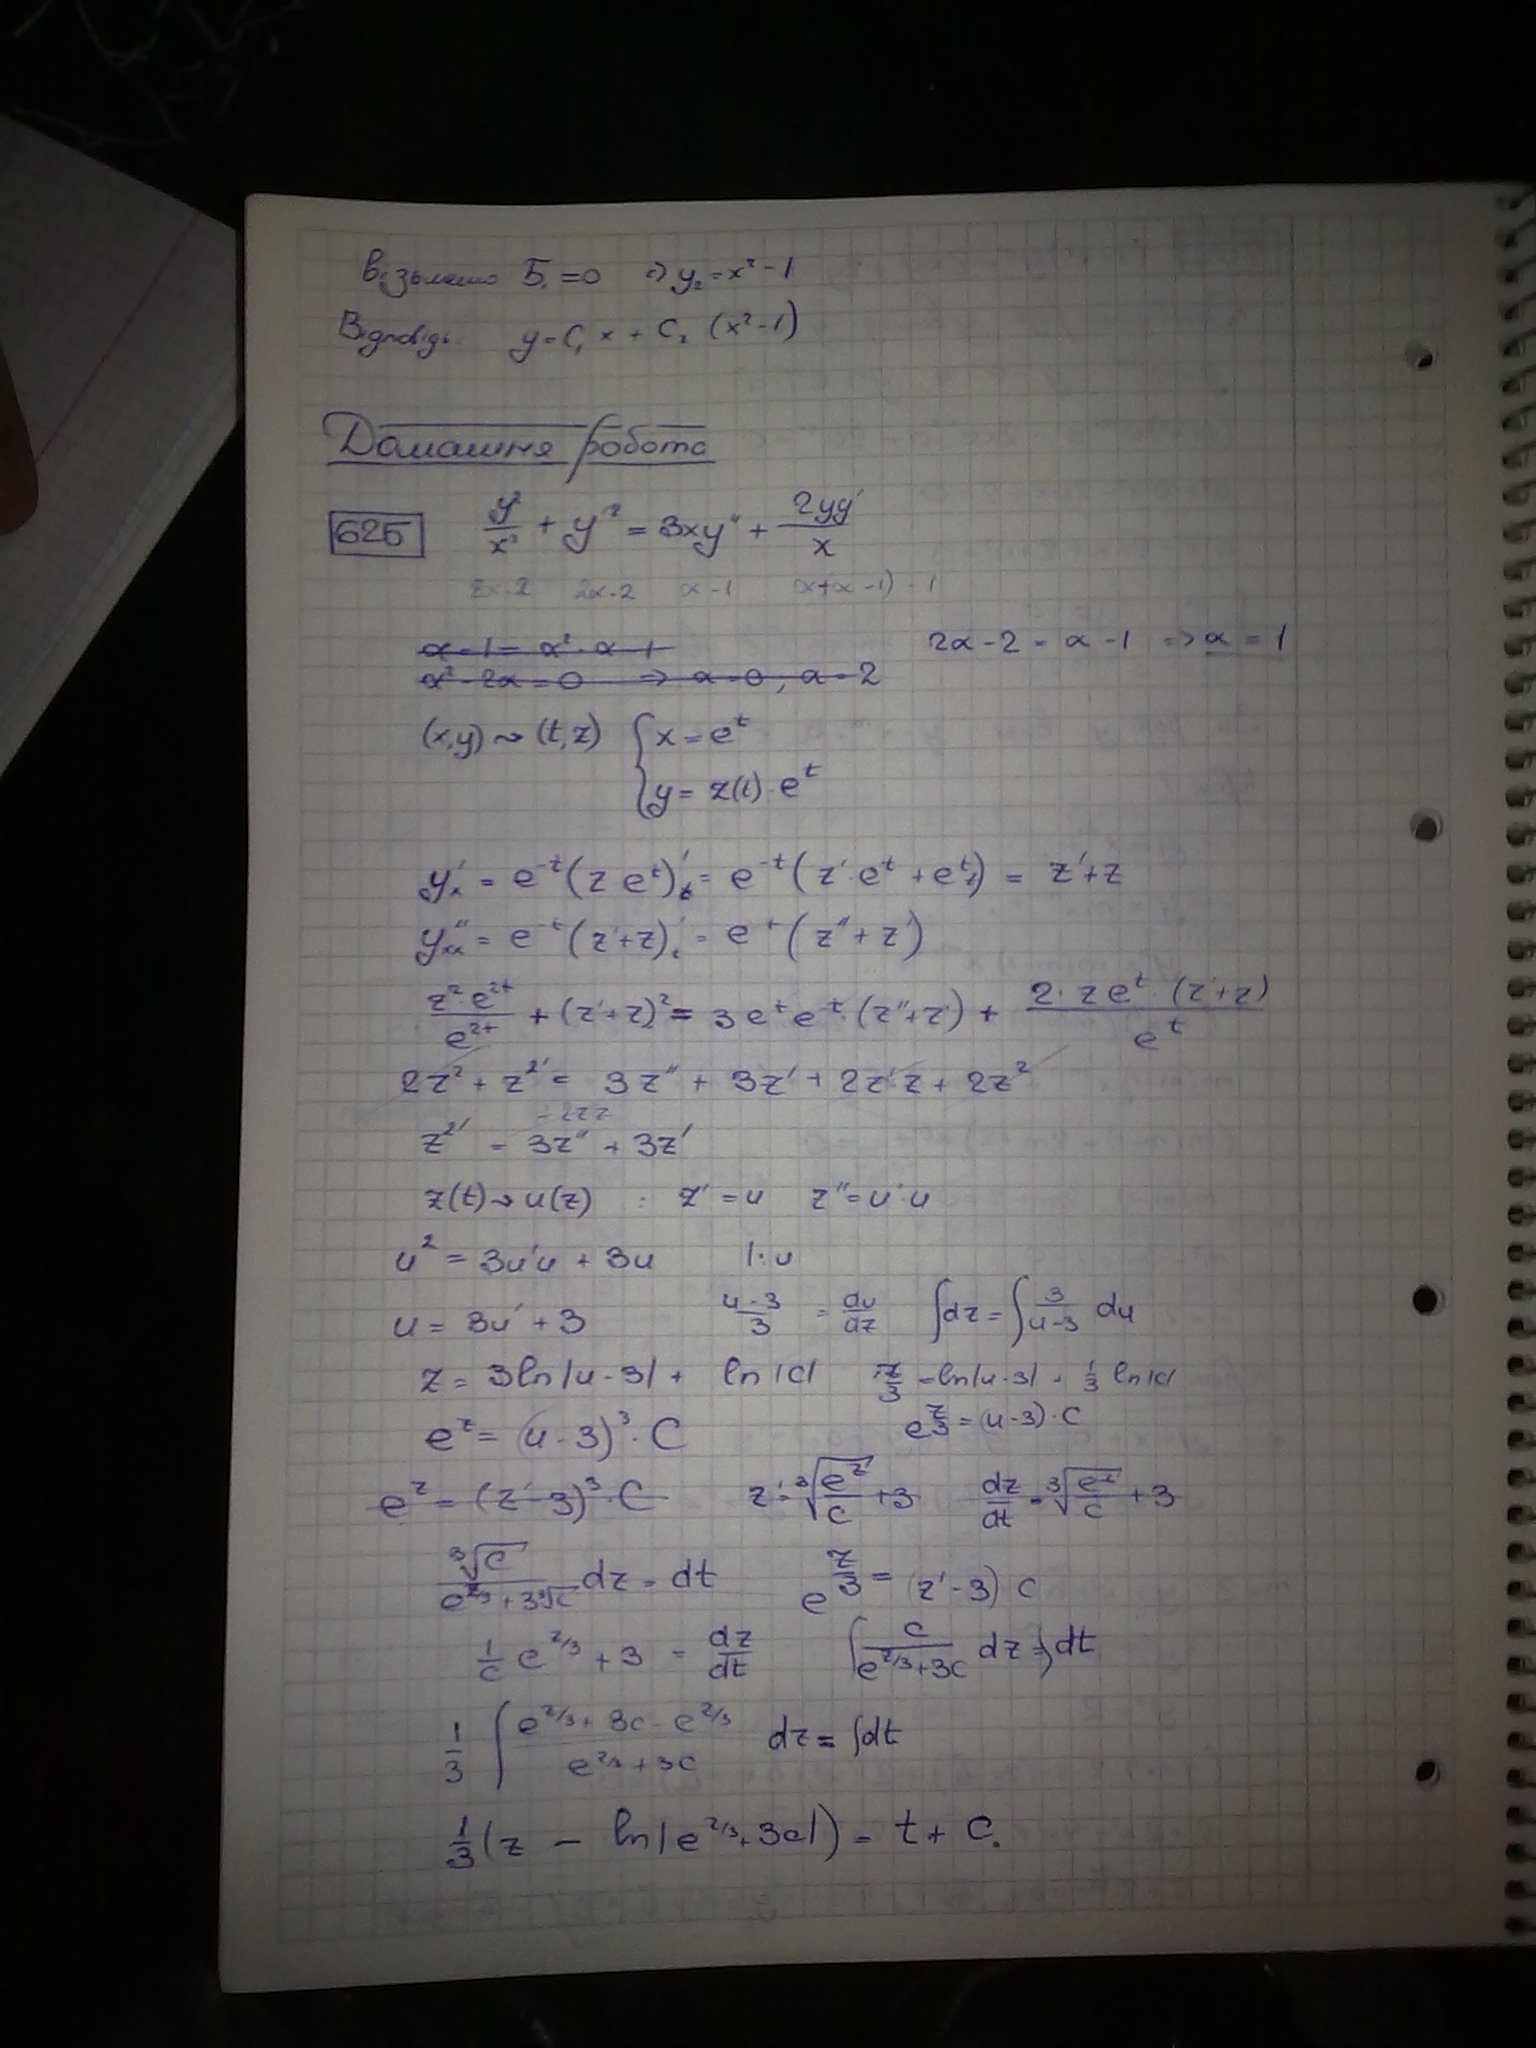 Візьмемо B₁ = 0 ⇒ y₂ = x² - 1
Відповідь y = C₁ x + C₂ (x² - 1)
Домашня робота
625 y²/x² + y'² = 3xy'' + 2yy'/x
2α-2 2α-2 α-1
α - 1 = α² - α - 1
2α - 2 = α - 1 ⇒ α = 1
α² - 2α = 0 ⇒ α = 0, α = 2
(x,y) ~> (t,z) { x = eᵗ
y = z(t)·eᵗ
y'ₓ = e⁻ᵗ(z eᵗ)'ₜ = e⁻ᵗ(z'·eᵗ + eᵗz) = z' + z
y''ₓₓ = e⁻ᵗ(z'+z)'ₜ = e⁻ᵗ(z'' + z')
z²·e²ᵗ/e²ᵗ + (z'+z)² = 3eᵗe⁻ᵗ·(z''+z') + 2·zeᵗ·(z'+z)/eᵗ
2z² + z²' = 3z'' + 3z' + 2z'·z + 2z²
- 2zz
z²' = 3z'' + 3z'
z(t) ~> u(z) : z' = u z'' = u'·u
u² = 3u'u + 3u |:u
u = 3u' + 3 (u-3)/3 = du/dz ∫dz = ∫3/(u-3) du
z = 3ln|u-3| + ln|C| z/3 = ln|u-3| + 1/3 ln|C|
e^z = (u-3)³·C e^(z/3) = (u-3)·C
e^z = (z'-3)³·C z' = ³√(e^z/C) + 3 dz/dt = ³√(e^z/C) + 3
³√C/(e^(z/3) + 3³√C) dz = dt e^(z/3) = (z'-3) C
1/C e^(z/3) + 3 = dz/dt ∫C/(e^(z/3)+3C) dz = ∫dt
1/3 ∫(e^(z/3) + 3C - e^(z/3))/(e^(z/3) + 3C) dz = ∫dt
1/3(z - ln|e^(z/3) + 3C|) = t + C.